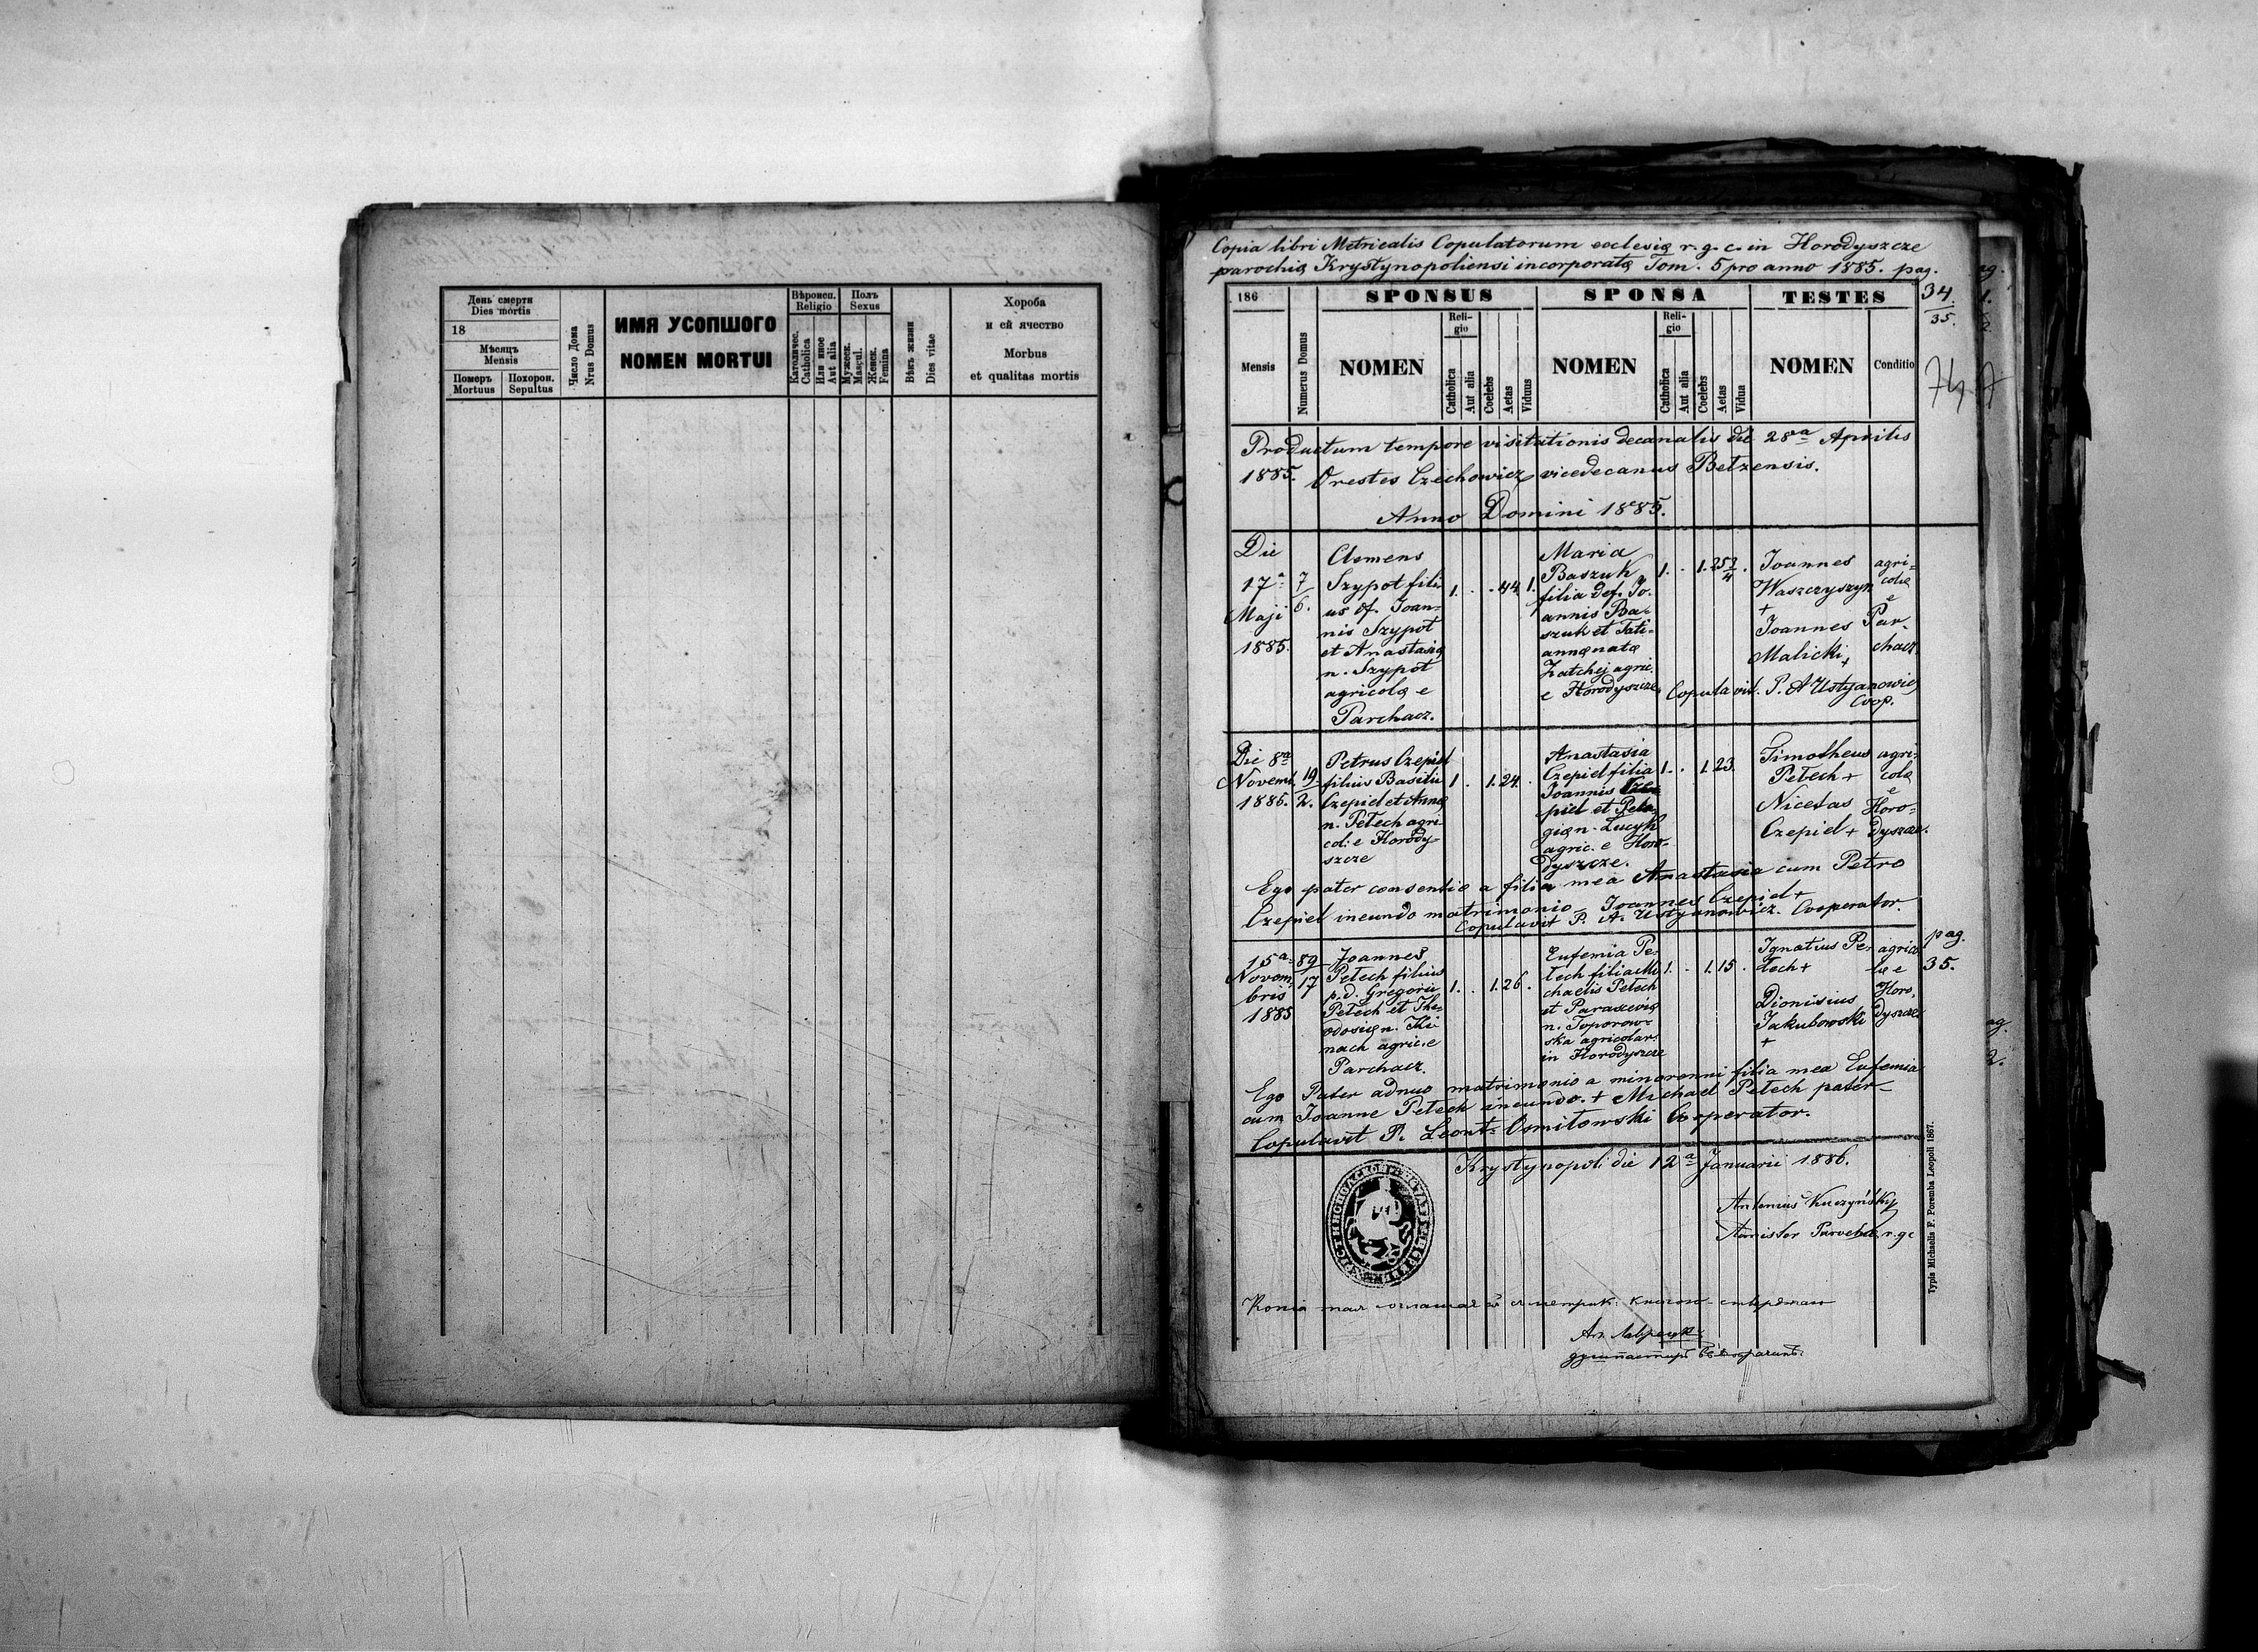 День смерти
Dies mortis
18
Мѣсяцъ
Mensis
Померъ
Mortuus
Похорон.
Sepultus
Число Дома
Nrus Domus
ИМЯ УСОПШОГО
NOMEN MORTUI
Вѣроисп.
Religio
Католичес.
Catholica
Или иное
Aut alia
Полъ
Sexus
Мужеск.
Mascul.
Женск.
Femina
Вѣкъ жизни
Dies vitae
Хороба
и єй ячество
Morbus
et qualitas mortis
Copia libri Metricalis Copulatorum ecclesiæ r. g. c. in Horodyszcze
parochiæ Krystynopoliensi incorporatæ Tom. 5 pro anno 1885. pag.
34.
35.
74
186
Mensis
Numerus Domus
SPONSUS
NOMEN
Reli-
gio
Catholica
Aut alia
Coelebs
Aetas
Viduus
SPONSA
NOMEN
Reli-
gio
Catholica
Aut alia
Coelebs
Aetas
Vidua
TESTES
NOMEN
Conditio
Productum tempore visitationis decanalis die 28va Aprilis
1885. Orestes Czechowicz vicedecanus Betzensis.
Anno Domini 1885.
Die
17a
Maji
1885.
7
6.
Clemens
Szypot fili-
us of. Joan-
nis Szypot
et Anastasiæ
n. Szypot
agricolæ e
Parchacz.
1. . . 44 1.
Maria
Baszuk
filia def. Jo-
annis Ba-
szuk et Tati-
annæ natæ
Zatchij agric.
e Horodyszcze
1. . 1. 25 3/4 .
Joannes
Waszczyszyn
+
Joannes
Malicki +
agri-
colæ
e
Par-
chacz
Copulavit. P. A Ustyanowicz
Coop.
Die 8va
Novemb.
1885.
19.
2.
Petrus Czepiel
filius Basilii
Czepiel et Annæ
n. Petech agri
col: e Horody-
szcze
1 . 1. 24 .
Anastasia
Czepiel filia
Joannis Cze-
piel et Pela-
giæ n. Lucyk
agric. e Horo-
dyszcze.
1. . 1. 23.
Timotheus
Petech +
Nicetas
Czepiel +
agri-
colæ
e
Horo-
dyszcze.
Ego pater consentio a filia mea Anastasia cum Petro
Czepiel ineundo matrimonio Joannes Czepiel +
Copulavit P. A. Ustyanowicz. Cooperator.
15a
Novem-
bris
1885
89
17
Joannes
Petech filius
p. d. Gregorii
Petech et The-
odosiæ n. Khi
nach agric. e
Parchacz.
1. . 1. 26 .
Eufemia Pe-
tech filia Mi-
chaelis Petech
et Parasceviæ
n. Toporow-
ska agricolar.
in Horodyszcze
1. . 1. 15 .
Ignatius Pe-
tech +
Dionisius
Jakubowski
+
agrico
læ e
Horo-
dyszcze
pag.
35.
Ego Pater adnuo matrimonio a minorenni filia mea Eufemia
cum Joanne Petech ineundo. + Michael Petech pater-
Copulavit P. Leont. Osmitowski Cooperator.
Krystynopoli die 12a Januarii 1886.
Antonius Kuczyński
r. gc
Typis Michaelis F. Poremba Leopoli 1867.